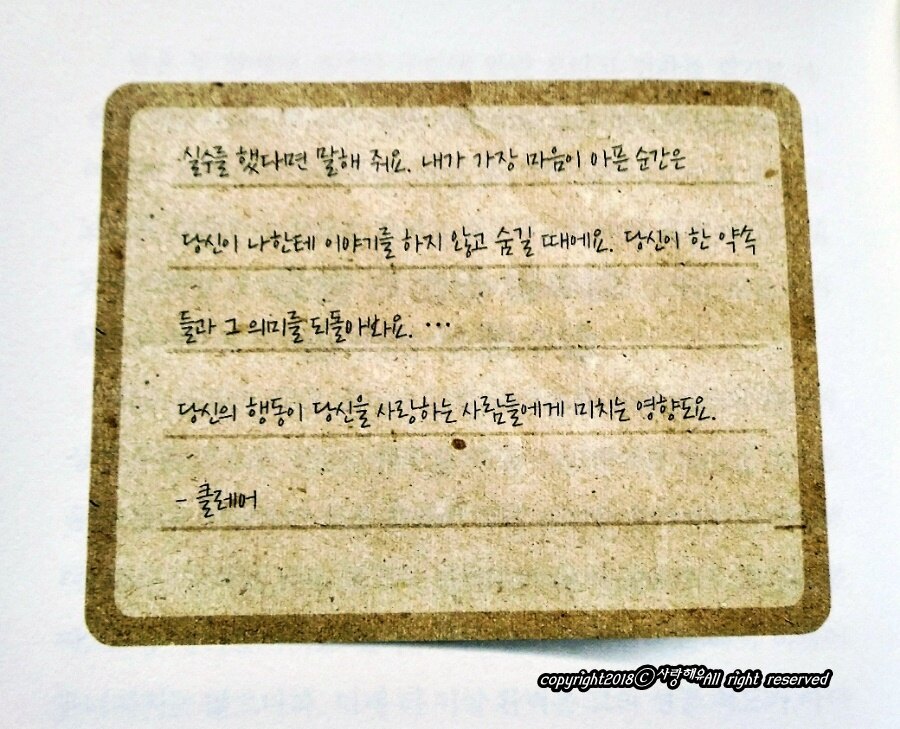 실수를 했다면 말해 줘요. 내가 가장 마음이 아픈 순간은
당신이 나한테 이야기를 하지 않고 숨길 때에요. 당신이 한 약속
들과 그 의미를 되돌아봐요. ···
당신의 행동이 당신을 사랑하는 사람들에게 미치는 영향도요.
- 클레어
copyright2018ⓒ사랑해우All right reserved